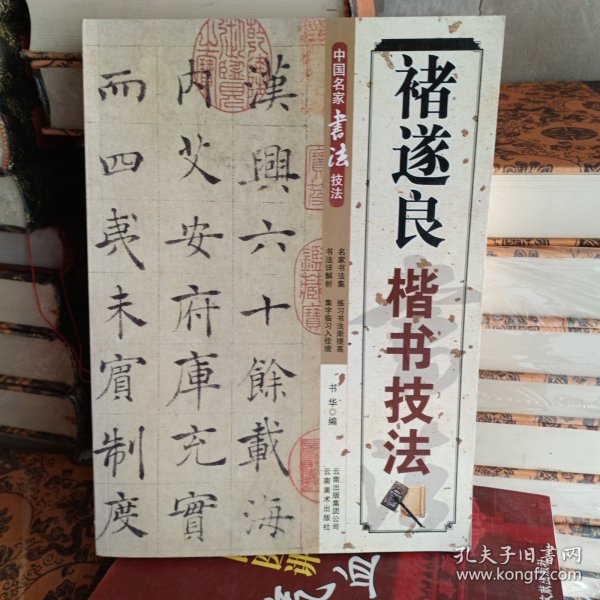 褚遂良
楷书技法
中国名家书法技法
名家书法集 练习书法渐提高
书法详解析 集字临习入佳境
书华 编
云南出版集团公司
云南美术出版社
漢興六十餘載海
内艾安府庫充實
而四夷未賓制度
鑑藏寶
孔夫子旧书网
www.kongfz.com